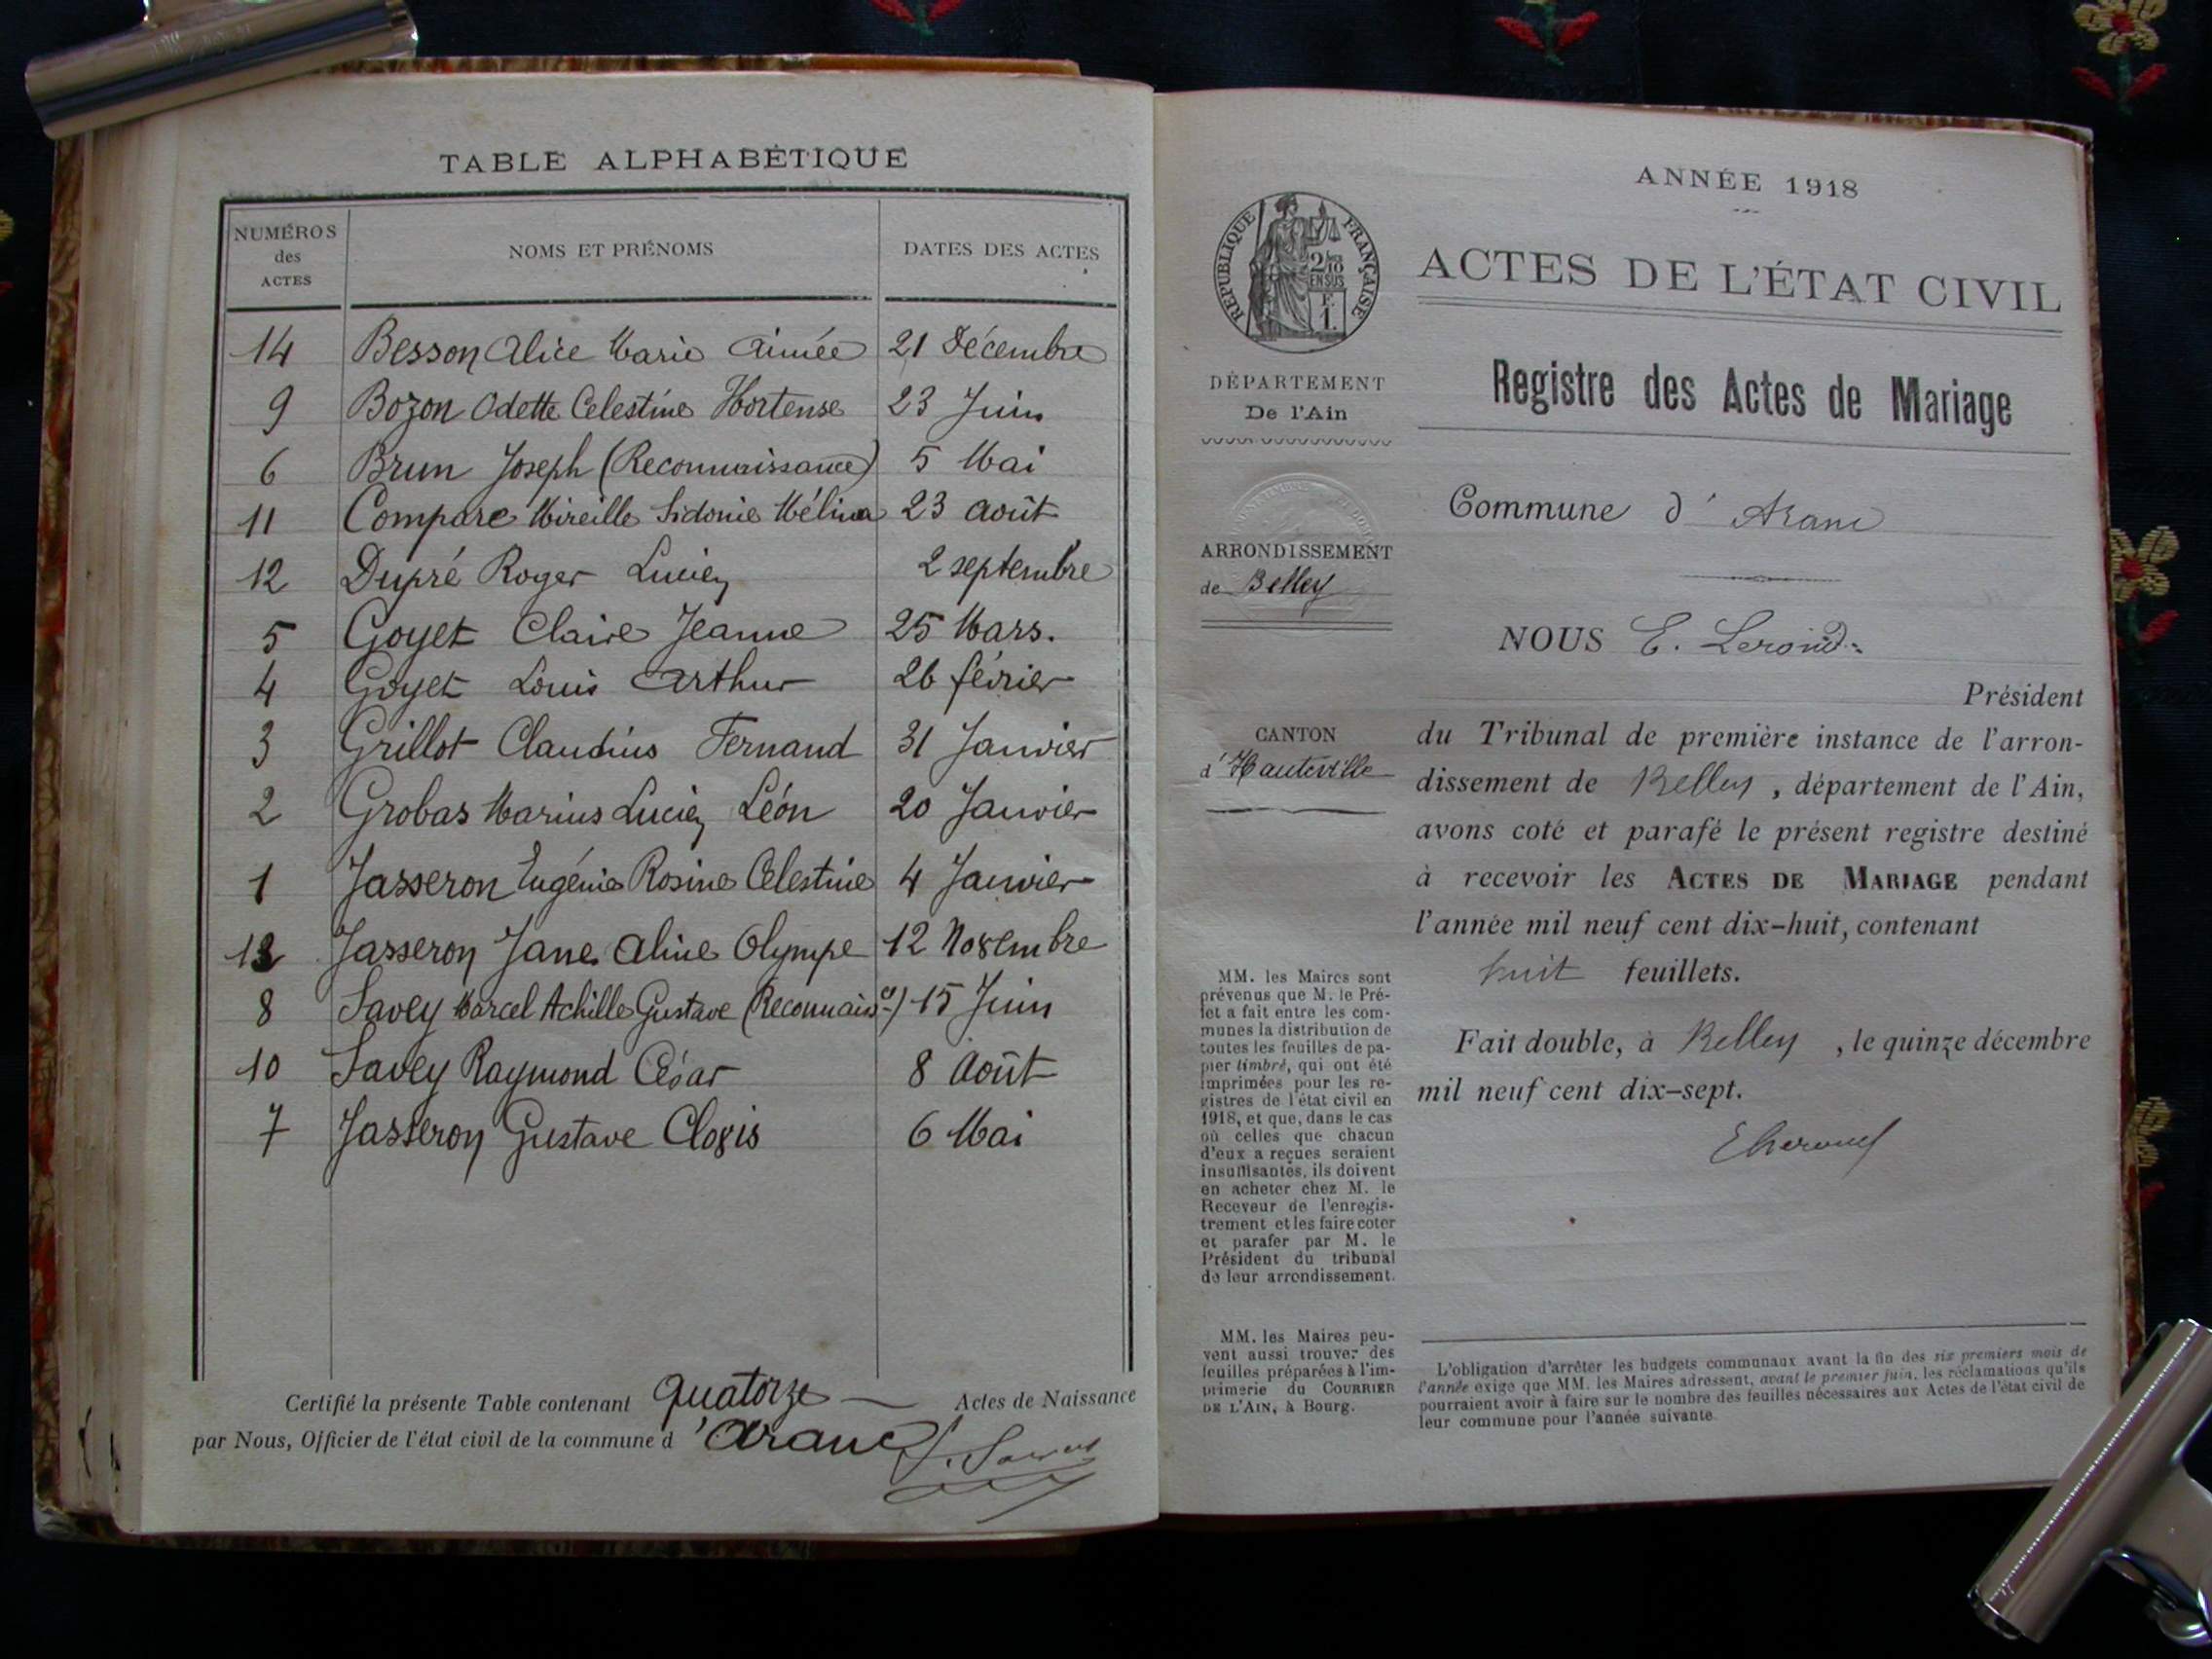 TABLE ALPHABÉTIQUE
NUMÉROS des ACTES NOMS ET PRÉNOMS DATES DES ACTES
14 Besson Alice Marie Aimée 21 Décembre
9 Bozon Odette Celestine Hortense 23 Juin
6 Brun Joseph (Reconnaissance) 5 Mai
11 Compare Mireille Sidonie Mélina 23 août
12 Dupré Roger Lucien 2 septembre
5 Goyet Claire Jeanne 25 Mars.
4 Goyet Louis Arthur 26 février
3 Grillot Claudius Fernand 31 Janvier
2 Grobas Marius Lucien Léon 20 Janvier
1 Jasseron Eugénie Rosine Celestine 4 Janvier
13 Jasseron Jane Aline Olympe 12 Novembre
8 Savey Marcel Achille Gustave (Reconnaisce) 15 Juin
10 Savey Raymond César 8 Août
7 Jasseron Gustave Clovis 6 Mai
Certifié la présente Table contenant quatorze Actes de Naissance
par Nous, Officier de l'état civil de la commune d'Aranc
ANNÉE 1918
RÉPUBLIQUE FRANÇAISE
2/10
EN SUS
F.
1.
ACTES DE L'ÉTAT CIVIL
DÉPARTEMENT
De l'Ain
Registre des Actes de Mariage
Commune d'Aranc
ARRONDISSEMENT
de Belley
NOUS E.
Président
CANTON
d'Hauteville
du Tribunal de première instance de l'arron-
dissement de Belley, département de l'Ain,
avons coté et parafé le présent registre destiné
à recevoir les ACTES DE MARIAGE pendant
l'année mil neuf cent dix-huit, contenant
huit feuillets.
Fait double, à Belley, le quinze décembre
mil neuf cent dix-sept.
MM. les Maires sont
prévenus que M. le Pré-
fet a fait entre les com-
munes la distribution de
toutes les feuilles de pa-
pier timbré, qui ont été
imprimées pour les re-
gistres de l'état civil en
1918, et que, dans le cas
où celles que chacun
d'eux a reçues seraient
insuffisantes, ils doivent
en acheter chez M. le
Receveur de l'enregis-
trement et les faire coter
et parafer par M. le
Président du tribunal
de leur arrondissement.
MM. les Maires peu-
vent aussi trouver des
feuilles préparées à l'im-
primerie du COURRIER
DE L'AIN, à Bourg.
L'obligation d'arrêter les budgets communaux avant la fin des six premiers mois de
l'année exige que MM. les Maires adressent, avant le premier juin, les réclamations qu'ils
pourraient avoir à faire sur le nombre des feuilles nécessaires aux Actes de l'état civil de
leur commune pour l'année suivante.